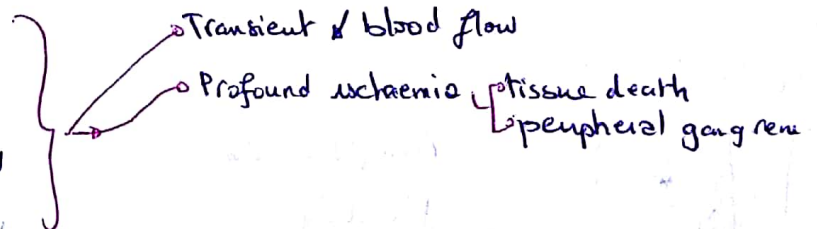 Transient ↓ blood flow
Profound ischaemia tissue death
peripheral gangrene